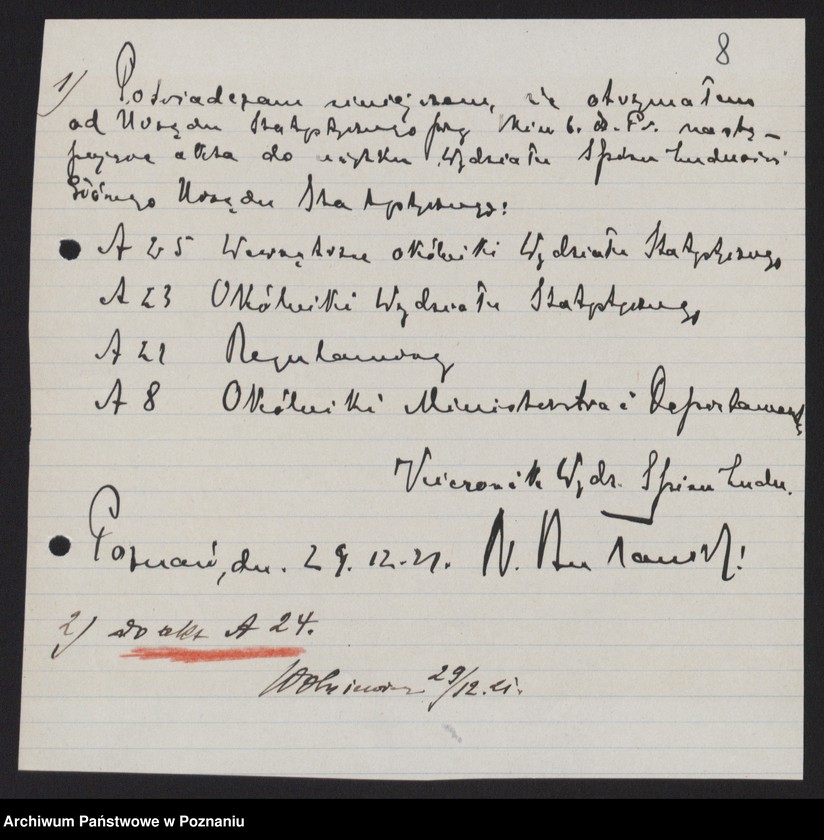 8
1) Poświadczam niniejszem, że otrzymałem
od Urzędu Statystycznego przy Min. b. dz. Pr. nastę-
pujące akta do użytku Wydziału Spisu Ludności
Głównego Urzędu Statystycznego:
A 25 Wewnętrzne okólniki Wydziału Statystycznego
A 23 Okólniki Wydziału Statystycznego
A 21 Regulaminy
A 8 Okólniki Ministerstra i Departamentu
Kierownik Wydz. Spisu Ludn.
Poznań, dn. 29.12.21.
2) do akt A 24.
29/12.21.
Archiwum Państwowe w Poznaniu